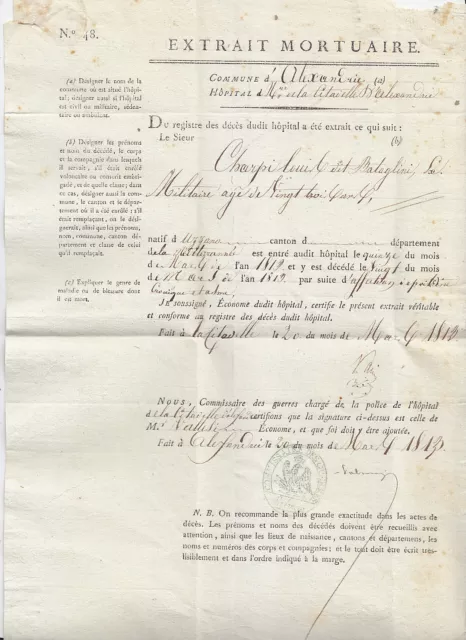 N.º 48.
EXTRAIT MORTUAIRE.
COMMUNE d'Alexandrie (a)
HÔPITAL d'Mre de la Citadelle d'Alexandrie
(a) Désigner le nom de la
commune où est situé l'hôpi-
tal; désigner aussi si l'hôpital
est civil ou militaire, séden-
taire ou ambulant.
(b) Désigner les prénoms
et nom du décédé, le corps
et la compagnie dans lesquels
il servait, s'il était enrôlé
volontaire ou conscrit enrôlé-
gié, et de quelle classe; dans
ce cas, désigner aussi la com-
mune, le canton et le dépar-
tement où il a été enrôlé; s'il
était remplaçant, on le dési-
gnera, ainsi que les prénoms,
nom, commune, canton, dépar-
tement et classe de celui
qu'il remplaçait.
(c) Expliquer le genre de
maladie ou de blessure dont
il est mort.
Du registre des décès dudit hôpital a été extrait ce qui suit :
Le Sieur (b)
Louis dit
Militaire agé de Vingt trois ans
natif d canton d département
de la est entré audit hôpital le quinze du mois
de Mars de l'an 1812 et y est décédé le Vingt du mois
de Mars de l'an 1812 par suite d'affection
Je soussigné, Économe dudit hôpital, certifie le présent extrait véritable
et conforme au registre des décès dudit hôpital.
Fait à la Citadelle le 20 du mois de Mars 1812
NOUS, Commissaire des guerres chargé de la police de l'hôpital
de la Citadelle certifions que la signature ci-dessus est celle de
M.r Économe, et que foi doit y être ajoutée.
Fait à Alexandrie le 20 du mois de Mars 1812
N. B. On recommande la plus grande exactitude dans les actes de
décès. Les prénoms et noms des décédés doivent être recueillis avec
attention, ainsi que les lieux de naissance, cantons et départemens, les
noms et numéros des corps et compagnies; et le tout doit être écrit très-
lisiblement et dans l'ordre indiqué à la marge.